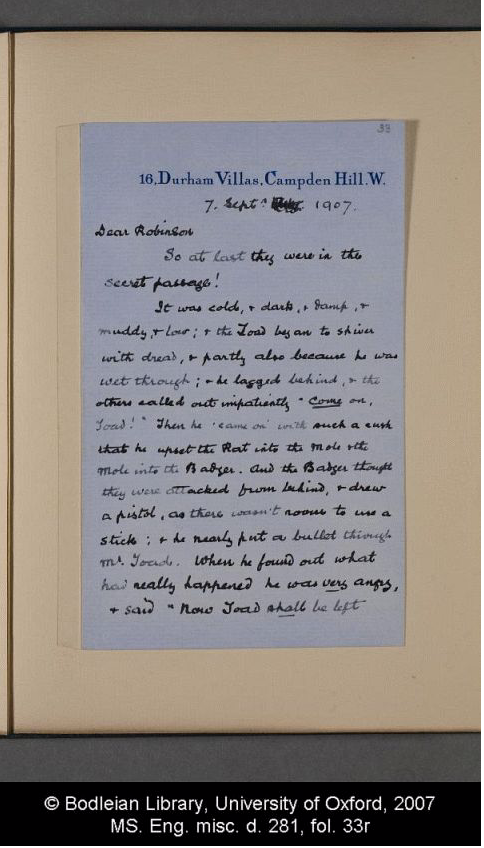 33
16, Durham Villas, Campden Hill. W.
7. Septr. 1907.
Dear Robinson
So at last they were in the
secret passage!
It was cold, & dark, & damp, &
muddy, & low; & the Toad began to shiver
with dread, & partly also because he was
wet through; & he lagged behind, & the
others called out impatiently "Come on,
Toad!" Then he 'came on' with such a rush
that he upset the Rat into the Mole & the
Mole into the Badger. And the Badger thought
they were attacked from behind, & drew
a pistol, as there wasn't room to use a
stick; & he nearly put a bullet through
Mr. Toad. When he found out what
had really happened he was very angry,
& said "Now Toad shall be left
© Bodleian Library, University of Oxford, 2007
MS. Eng. misc. d. 281, fol. 33r